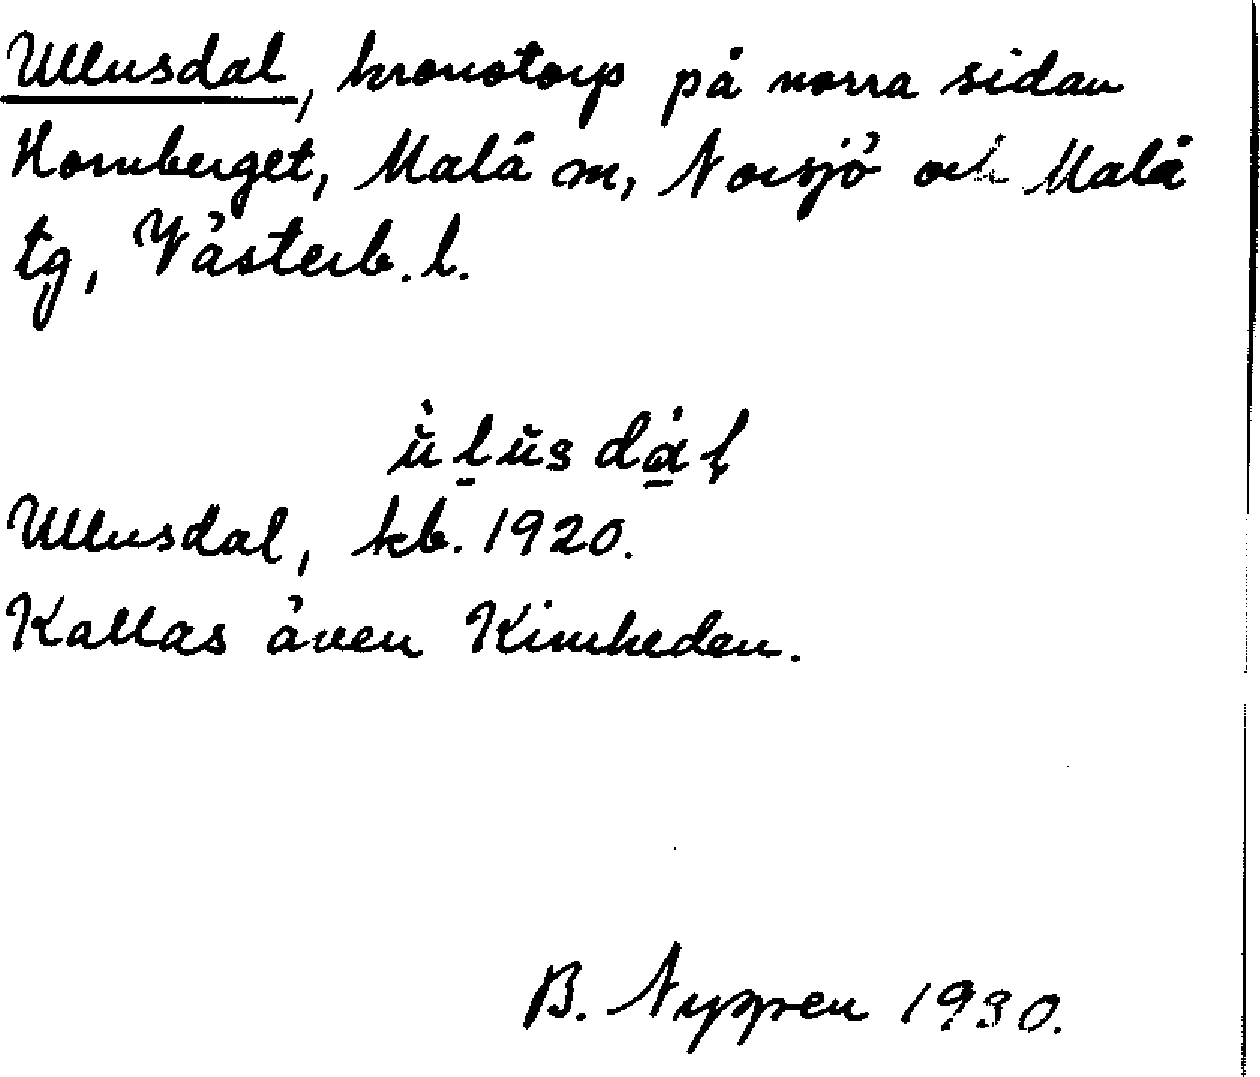 Ullusdal, kronotorp på norra sidan
Hornberget, Malå m, Norsjö och Malå
tg, Västerb. l.
Ullusdal, kb. 1920.
Kallas även Kimheden.
B. Nyppen 1930.